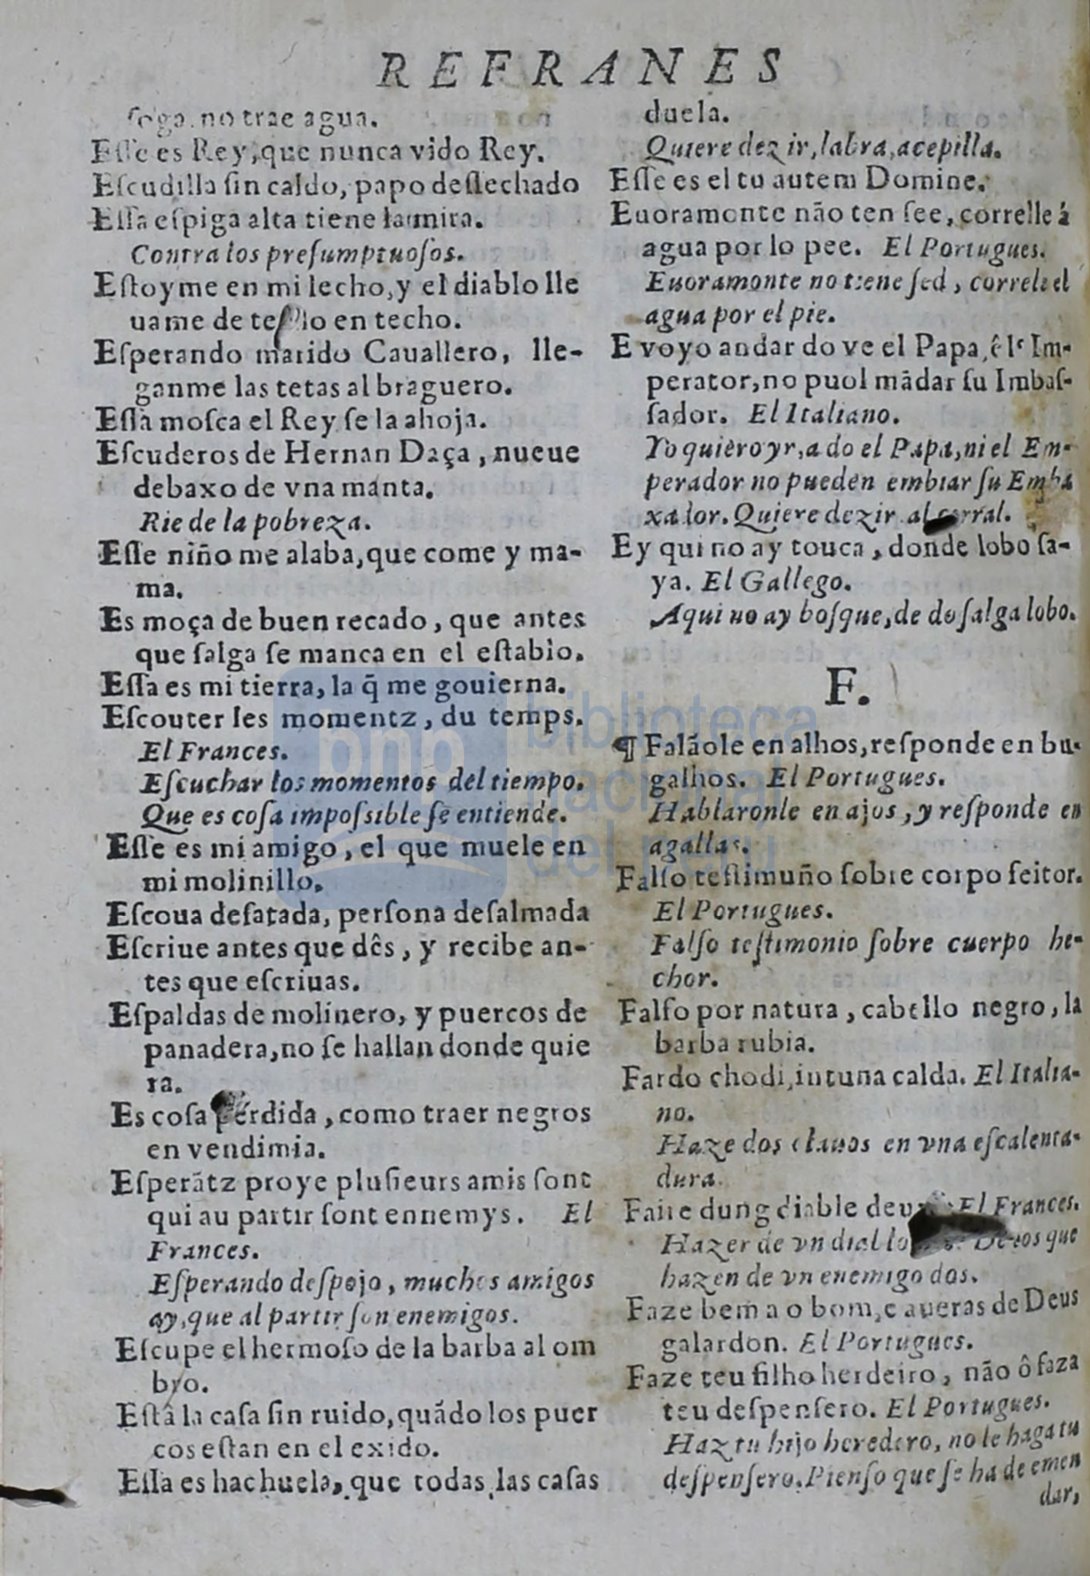 REFRANES
soga, no trae agua.
Esse es Rey, que nunca vido Rey.
Escudilla sin caldo, papo deslechado
Essa espiga alta tiene la mira.
Contra los presumptuosos.
Estoyme en mi lecho, y el diablo lle
uame de tello en techo.
Esperando marido Cauallero, lle-
ganme las tetas al braguero.
Essa mosca el Rey se la ahoja.
Escuderos de Hernan Daça, nueue
debaxo de vna manta.
Rie de la pobreza.
Esse niño me alaba, que come y ma-
ma.
Es moça de buen recado, que antes
que salga se manca en el establo.
Essa es mi tierra, la q̃ me gouierna.
Escouter les momentz, du temps.
El Frances.
Escuchar los momentos del tiempo.
Que es cosa impossible se entiende.
Esse es mi amigo, el que muele en
mi molinillo.
Escoua desatada, persona desalmada
Escriue antes que dês, y recibe an-
tes que escriuas.
Espaldas de molinero, y puercos de
panadera, no se hallan donde quie
ra.
Es cosa perdida, como traer negros
en vendimia.
Esperãtz proye plusieurs amis sont
qui au partir sont ennemys. El
Frances.
Esperando despojo, muchos amigos
ay, que al partir son enemigos.
Escupe el hermoso de la barba al om
bro.
Està la casa sin ruido, quãdo los puer
cos estan en el exido.
Essa es hachuela, que todas las casas
duela.
Quiere dezir, labra, acepilla.
Esse es el tu autem Domine.
Euoramonte não ten see, correlle á
agua por lo pee. El Portugues.
Euoramonte no tiene sed, correle el
agua por el pie.
E voyo andar do ve el Papa, ê le Im-
perator, no puol mãdar su Imbas-
sador. El Italiano.
Yo quiero yr, a do el Papa, ni el Em-
perador no pueden embiar su Emba
xador. Quiere dezir al corral.
Ey qui no ay touca, donde lobo sa-
ya. El Gallego.
Aqui no ay bosque, de do salga lobo.
F.
¶ Falãole en alhos, responde en bu-
galhos. El Portugues.
Hablaronle en ajos, y responde en
agallas.
Falso testimuño sobre corpo feitor.
El Portugues.
Falso testimonio sobre cuerpo he-
chor.
Falso por natura, cabello negro, la
barba rubia.
Fardo chodi, in tuna calda. El Italia-
no.
Haze dos clauos en vna escalenta-
dura.
Faire dung diable deux. El Frances.
Hazer de vn diablo los que
hazen de vn enemigo dos.
Faze bem a o bom, e aueras de Deus
galardon. El Portugues.
Faze teu filho herdeiro, não ô faza
teu despensero. El Portugues.
Haz tu hijo heredero, no le haga tu
despensero. Pienso que se ha de emen
dar,
biblioteca
nacional
del perú
bnp